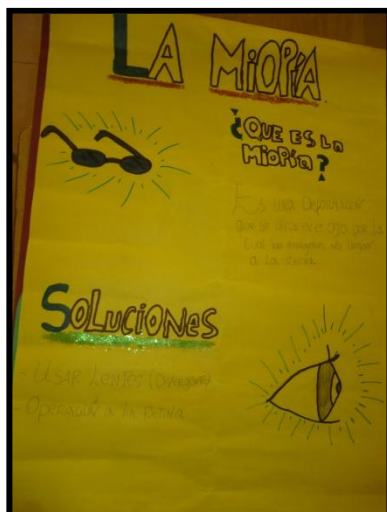 LA MIOPÍA
¿QUE ES LA
MIOPÍA?
Es una Deformación
que se ubica en el ojo por la
cual las imágenes no llegan
a la retina
SOLUCIONES
- USAR LENTES (Divergentes)
- OPERACIÓN A LA RETINA